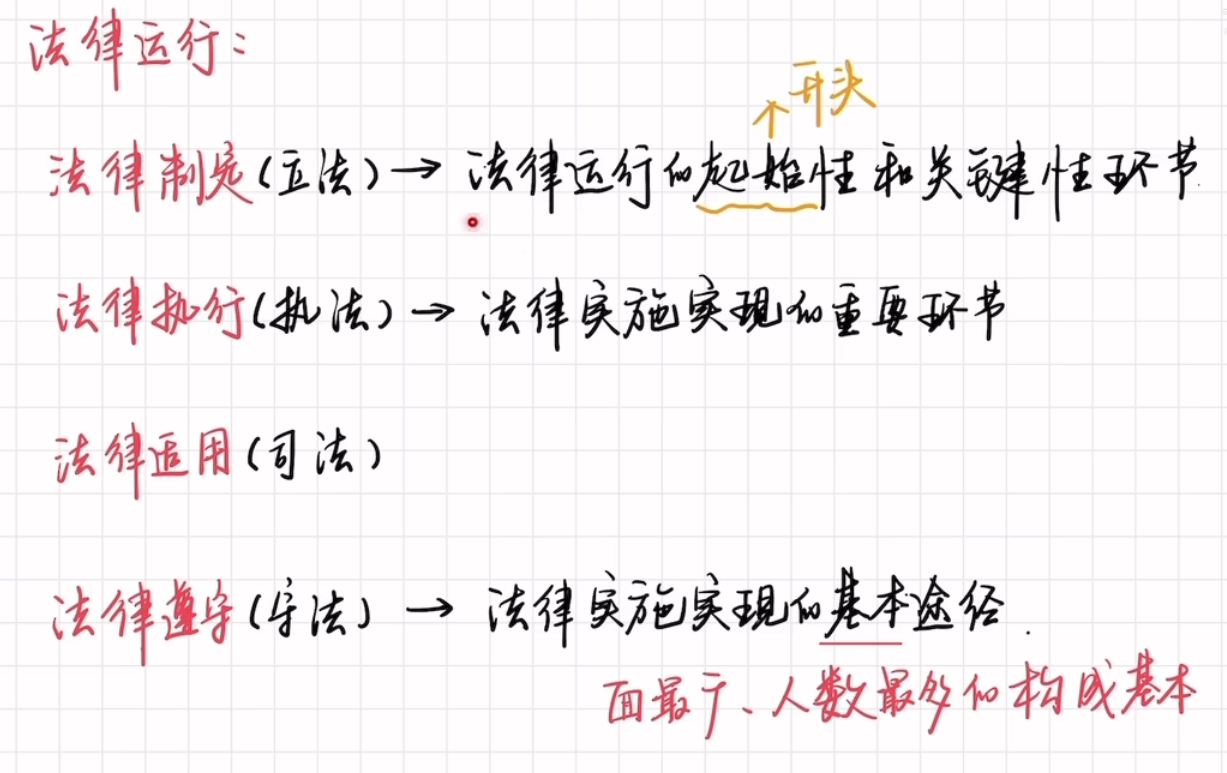 法律运行：
开头
法律制定(立法)→ 法律运行的起始性和关键性环节.
法律执行(执法)→ 法律实施实现的重要环节
法律适用(司法)
法律遵守(守法) → 法律实施实现的基本途径.
面最广、人数最多的构成基本